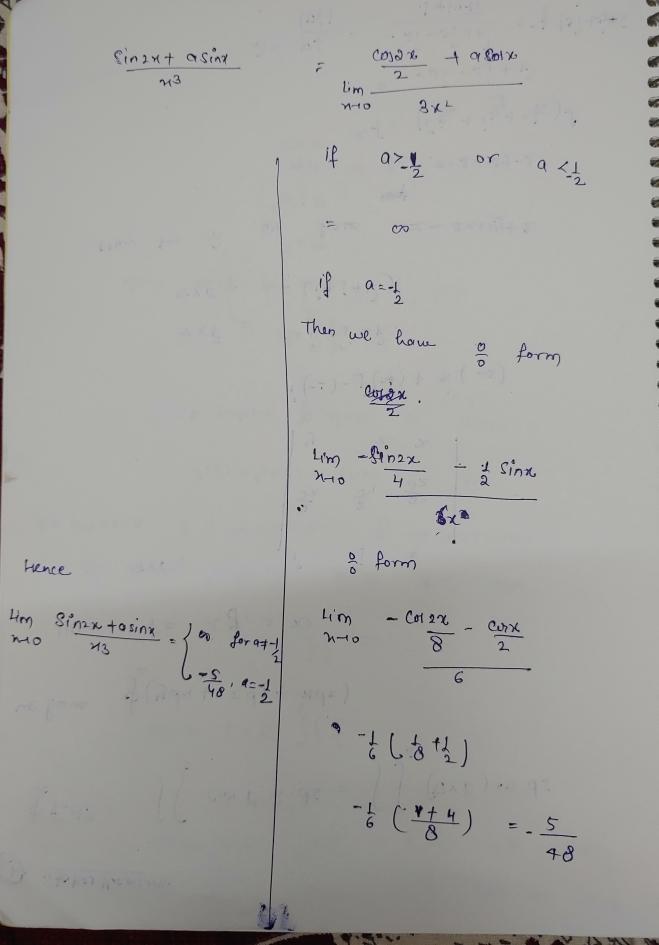 sin2x + a sinx / x3 = lim x→0 cos2x/2 + a cosx / 3x2
if a > -1/2 or a < 1/-2
= ∞
if a = -1/2
Then we have 0/0 form
cos2x/2 .
lim x→0 -sin2x/4 - 1/2 sinx / 6x
0/0 form
lim x→0 - cos2x/8 - cosx/2 / 6
-1/6 (1/8 + 1/2)
-1/6 (1 + 4 / 8) = - 5/48
Hence
lim x→0 sin2x + a sinx / x3 = { ∞ for a ≠ -1/2
-5/48 , a = -1/2